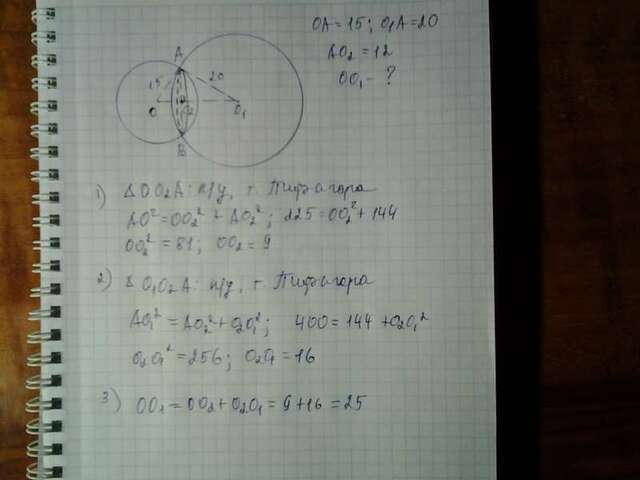 OA = 15; O₁A = 20
AO₂ = 12
OO₁ - ?
A
15
20
O
O₁
B
1) Δ OO₂A: п/у, т. Пифагора
AO² = OO₂² + AO₂²; 225 = OO₂² + 144
OO₂² = 81; OO₂ = 9
2) Δ O₁O₂A: п/у, т. Пифагора
AO₁² = AO₂² + O₂O₁²; 400 = 144 + O₂O₁²
O₂O₁² = 256; O₂O₁ = 16
3) OO₁ = OO₂ + O₂O₁ = 9 + 16 = 25